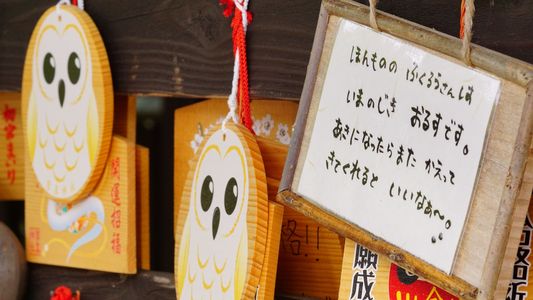 ほんものの ふくろうさんは
いまのじき おるすです。
あきになったらまた かえって
きてくれると いいなあ〜。
初宮まいり
開運招福
格!!
願成